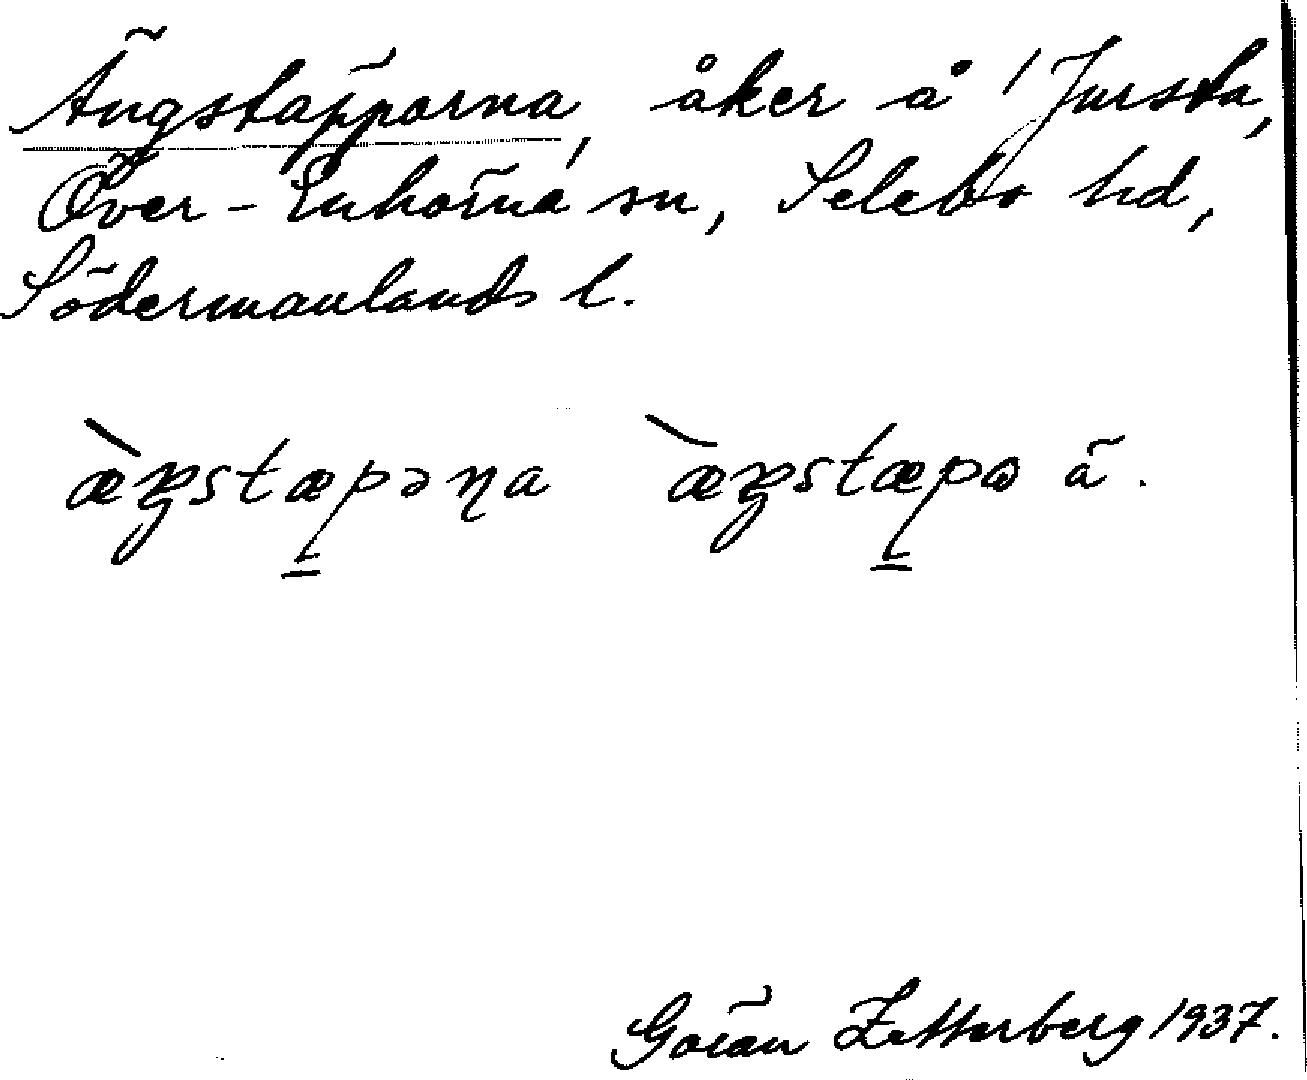 Ängstäpporna, åker å 1 Jursta,
Över-Enhörna sn, Selebo hd,
Södermanlands l.
æ̀ŋstæpəɳa æ̀ŋstæpɷ ä.
Göran Zetterberg 1937.